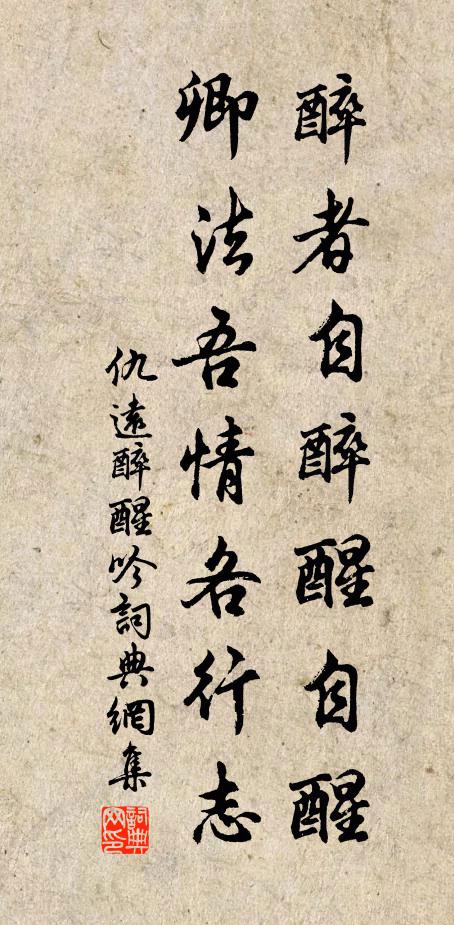 醉者自醉醒自醒
卿法吾情各行志
仇遠醉醒吟詞典網集
詞典網印